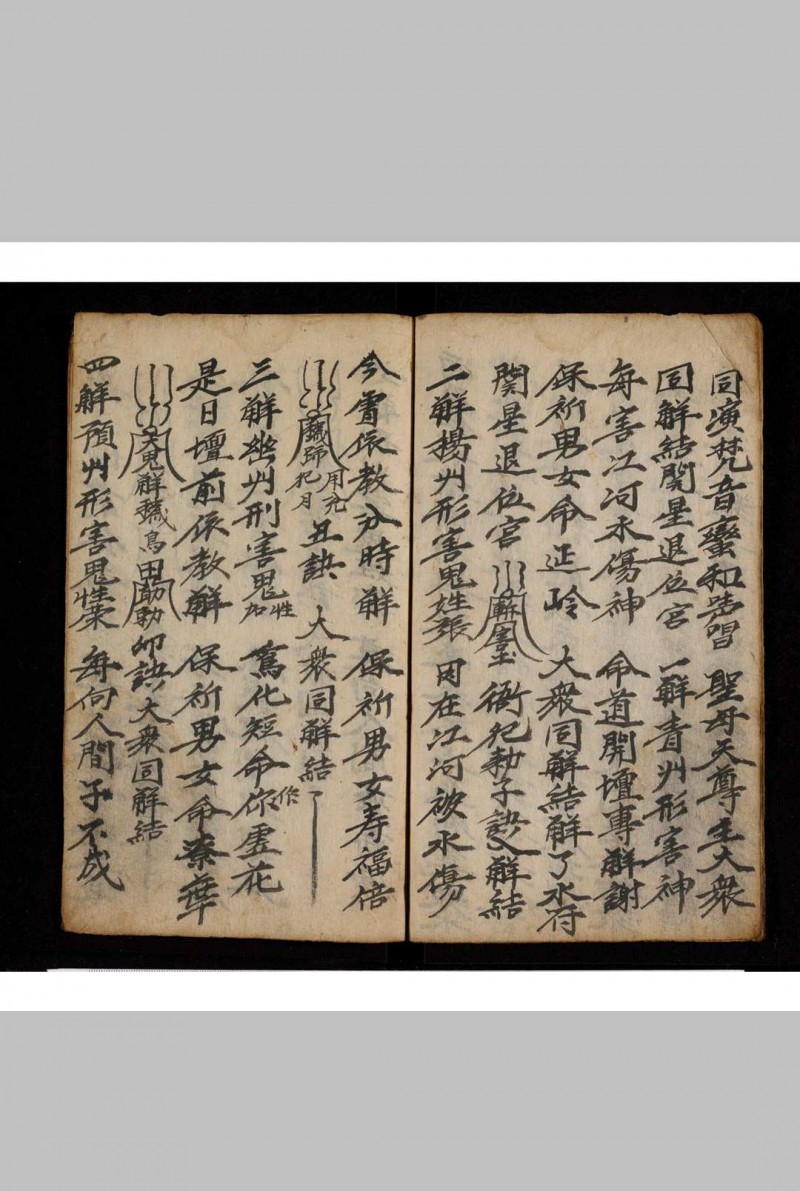 同演梵音齊和唱 聖母天尊主大衆
同解結関星退位宮 一解青州形害神
每害江河水傷神 命道開壇專解謝
保祈男女命延岭 大衆同解結解了水符
関星退位宮 衙犯勅子訣入解結
二解揚州形害鬼姓張 因在江河被水傷
今宵依教分時解 保祈男女寿福倍
丑訣 大衆同解結了
三解幽州刑害鬼 性加 寫化短命你作虛花
是日壇前依教解 保祈男女命榮華
解 卯訣大衆同解結
四解預州形害鬼性宋 每向人間子不成